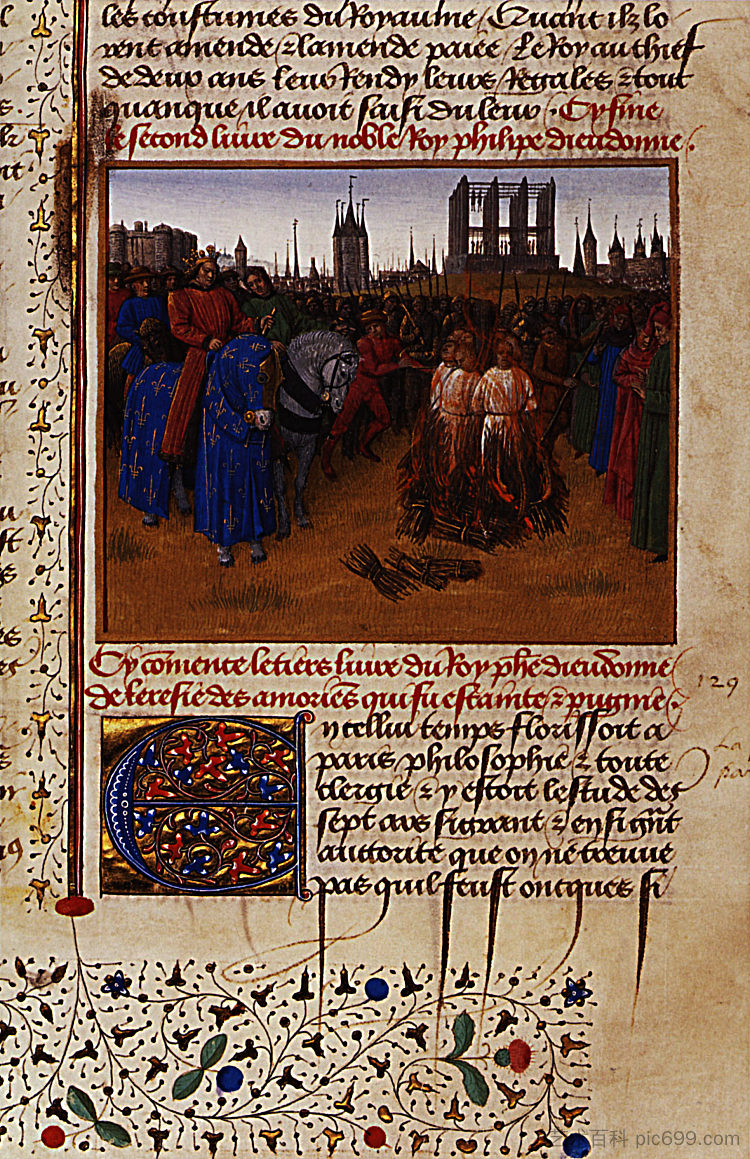 les coustumes du Royaume / Quant ilz lo
rent amende & lamende paiee / Le Roy au chief
de deux ans leur Rendy leurs Regales & tout
quanque il avoit saisi du leur · Cy fine
le second livre du noble Roy philipe dieudonne .
Cy comence le tiers livre du Roy phe dieudonne
de leresie des amories qui fu estainte & pugnie .
129
En cellui temps florissoit a
paris philosophie & toute
clergie & y estoit lestude des
sept ars si grant & en si grnt
auctorite que on ne treuve
pas quil feust oncques si
百科 pic699.com